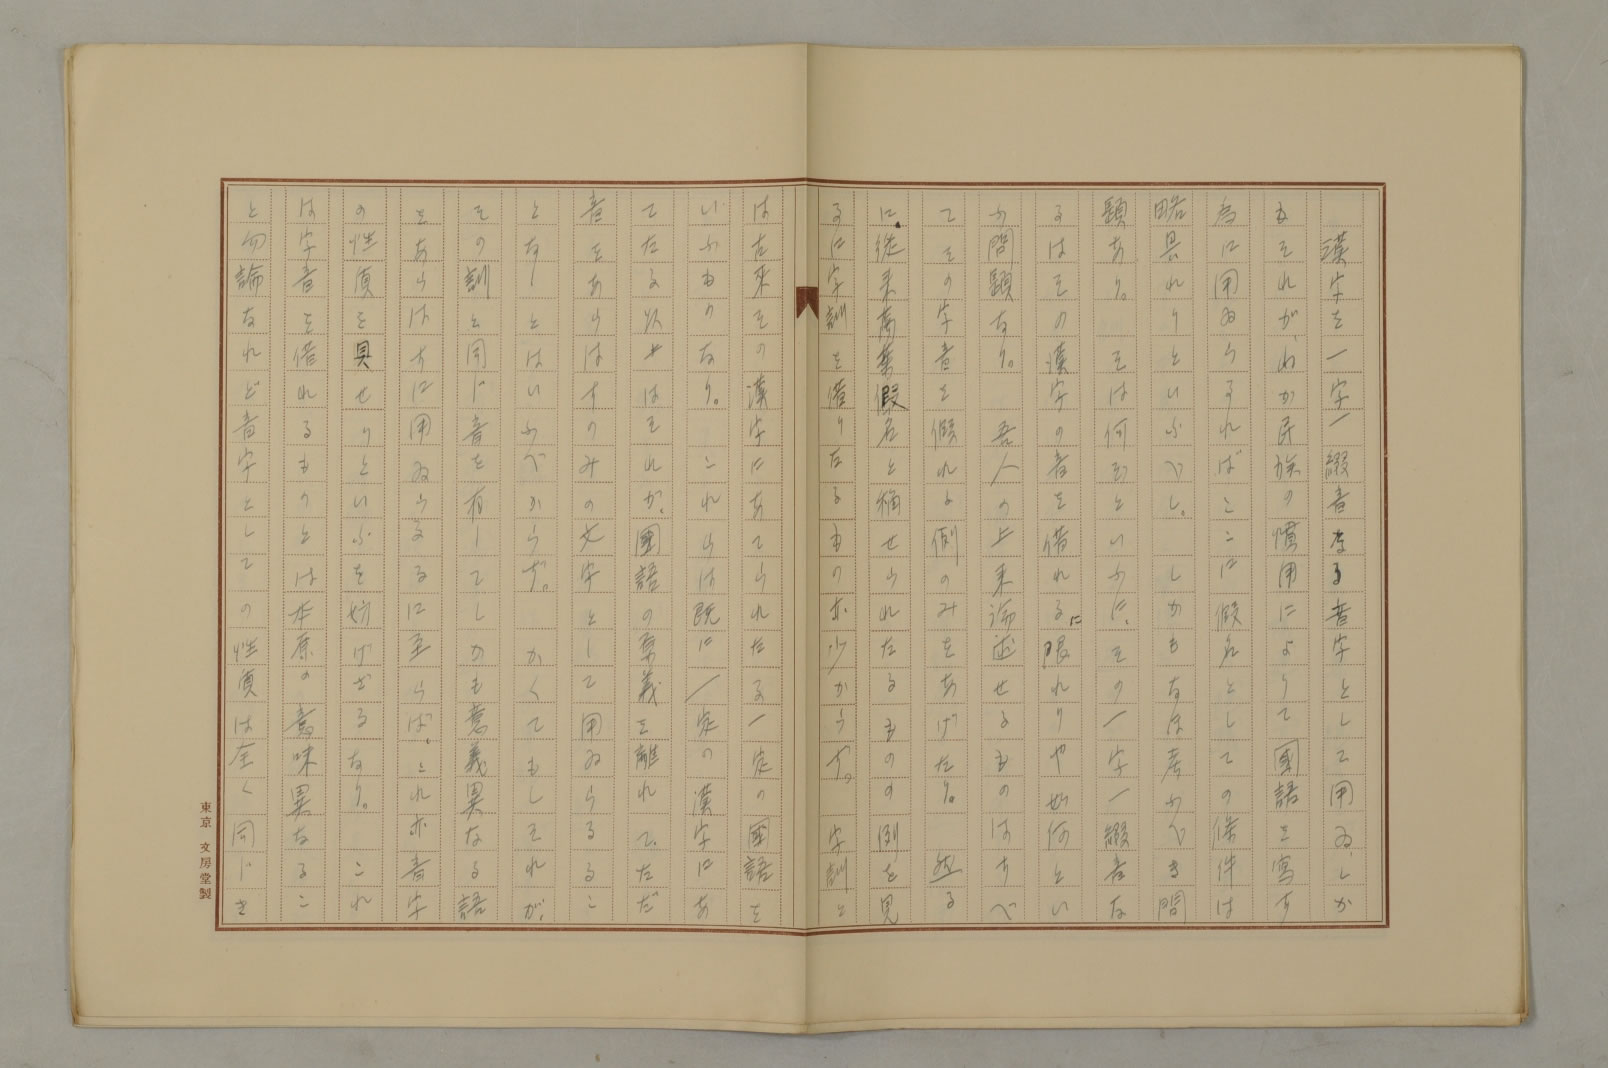 漢字を一字一綴音なる音字として用ゐ、しか
もそれが、わが民族の慣用によりて國語を寫す
為に用ゐらるればここに假名としての條件は
略具れりといふべし。しかもなほ考ふべき問
題あり。そは何ぞといふに、その一字一綴音な
るはその漢字の音を借れるに限れりや如何とい
ふ問題なり。吾人の上来論述せるものはすべ
てその字音を假れる例のみをあげたり。然る
に、従来萬葉假名と稱せられたるものの例を見
るに字訓を借りたるもの亦少からず。字訓と
は古来その漢字にあてられたる一定の國語を
いふものなり。これらは既に一定の漢字にあ
てたる以上はそれが、國語の意義を離れて、ただ
音をあらはすのみの文字として用ゐらるるこ
となしとはいふべからず。かくてもしそれが、
その訓と同じ音を有してしかも意義異なる語
をあらはすに用ゐらるるに至らば、これ亦音字
の性質を具せりといふを妨げざるなり。これ
は字音を借れるものとは本原の意味異なるこ
と勿論なれど音字としての性質は全く同じき
東京 文房堂製